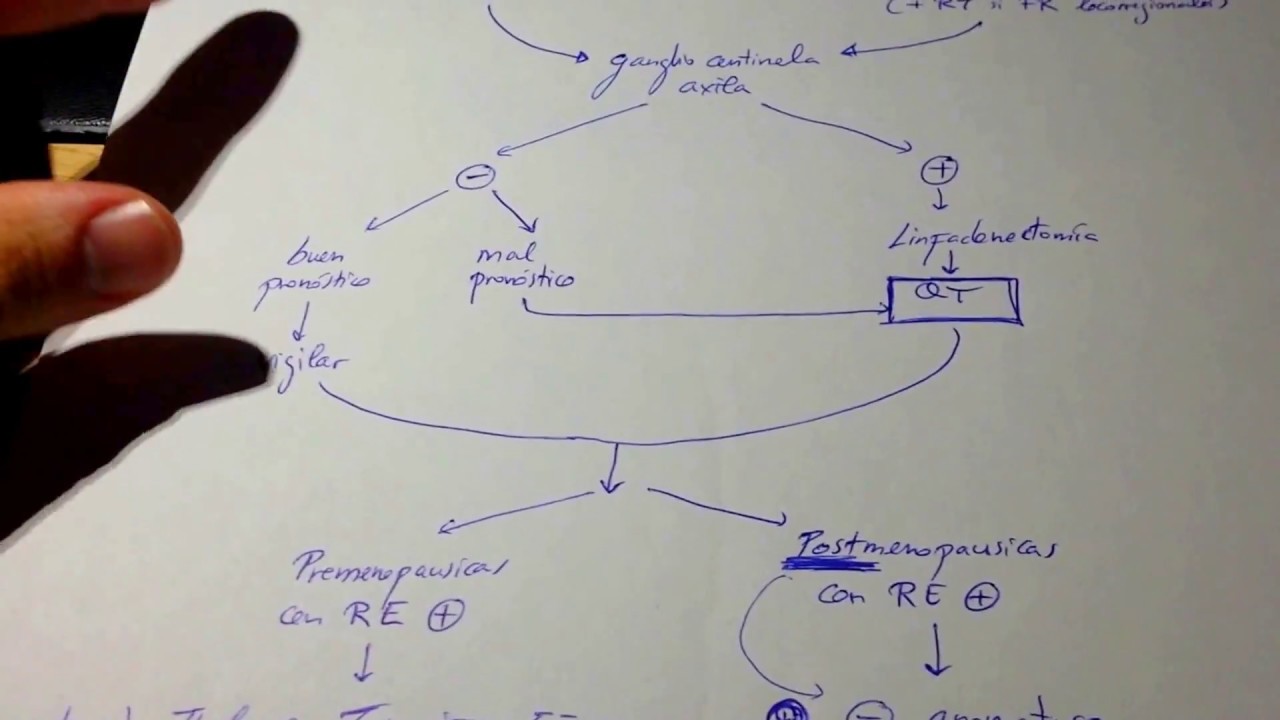 (+ RT si FR locorregionales)
ganglio centinela
axila
-
+
Linfadenectomía
buen
pronóstico
mal
pronóstico
QT
vigilar
Premenopausicas
con RE +
Postmenopausicas
con RE +